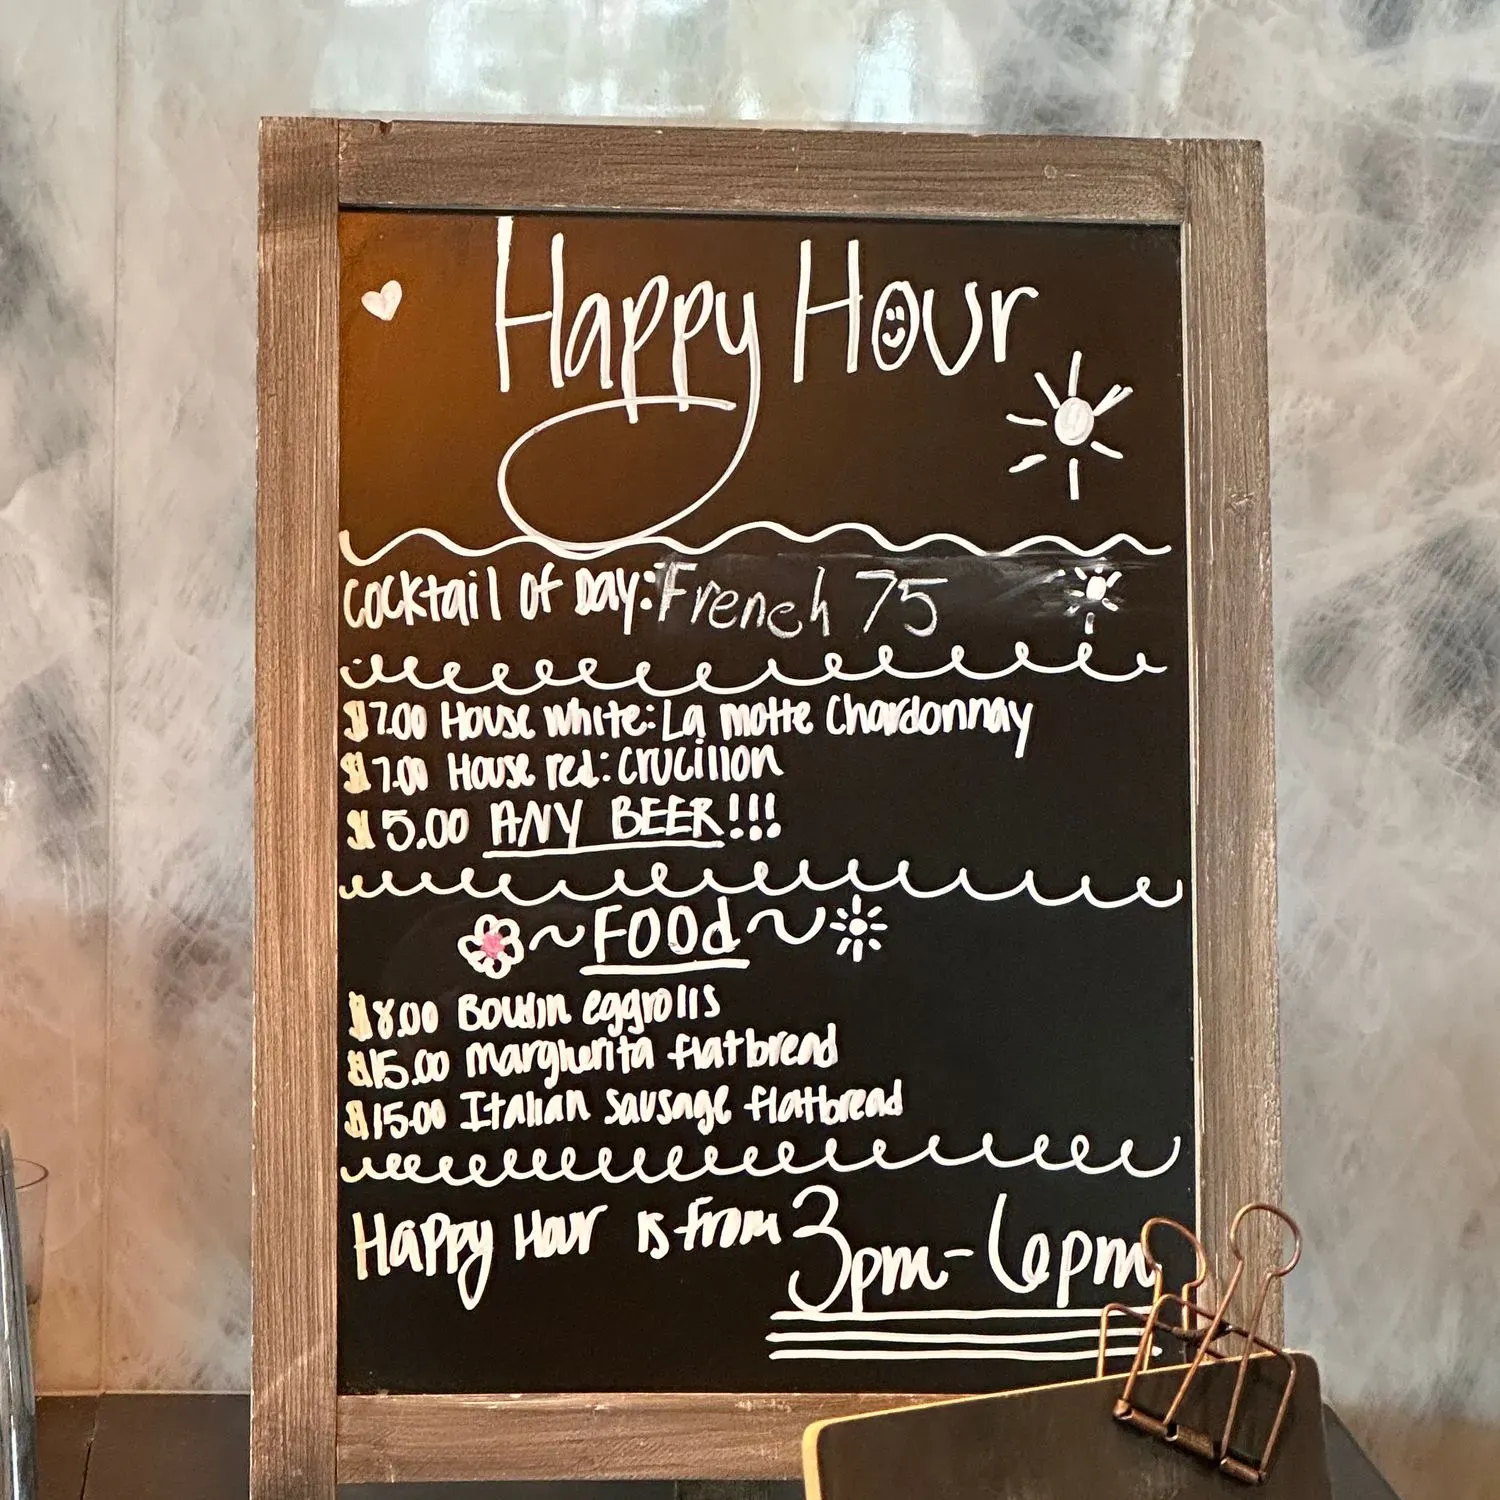 Happy Hour
Cocktail of Day: French 75
$7.00 House white: La motte Chardonnay
$7.00 House red: Crucillon
$5.00 ANY BEER!!!
~ FOOd ~
$8.00 Boudin eggrolls
$15.00 margherita flatbread
$15.00 Italian sausage flatbread
Happy Hour is from 3pm-6pm